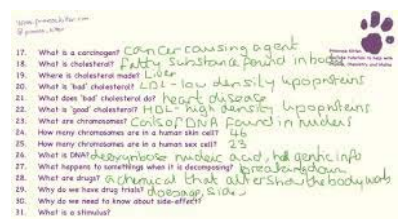 www.primrosekitten.com
@primrose_kitten
17. What is a carcinogen? cancer causing agent
18. What is cholesterol? fatty substance found in body
19. Where is cholesterol made? Liver
20. What is 'bad' cholesterol? LDL - low density lipoproteins
21. What does 'bad' cholesterol do? heart disease
22. What is 'good' cholesterol? HDL - high density lipoproteins
23. What are chromosomes? Coils of DNA found in nucleus
24. How many chromosomes are in a human skin cell? 46
25. How many chromosomes are in a human sex cell? 23
26. What is DNA? deoxyribose nucleic acid, hold genetic info
27. What happens to somethings when it is decomposing? breaking down
28. What are drugs? a chemical that alters how the body works
29. Why do we have drug trials? doesage, side
30. Why do we need to know about side-effects?
31. What is a stimulus?
Primrose Kitten
tutorials to help with
Chemistry and Maths